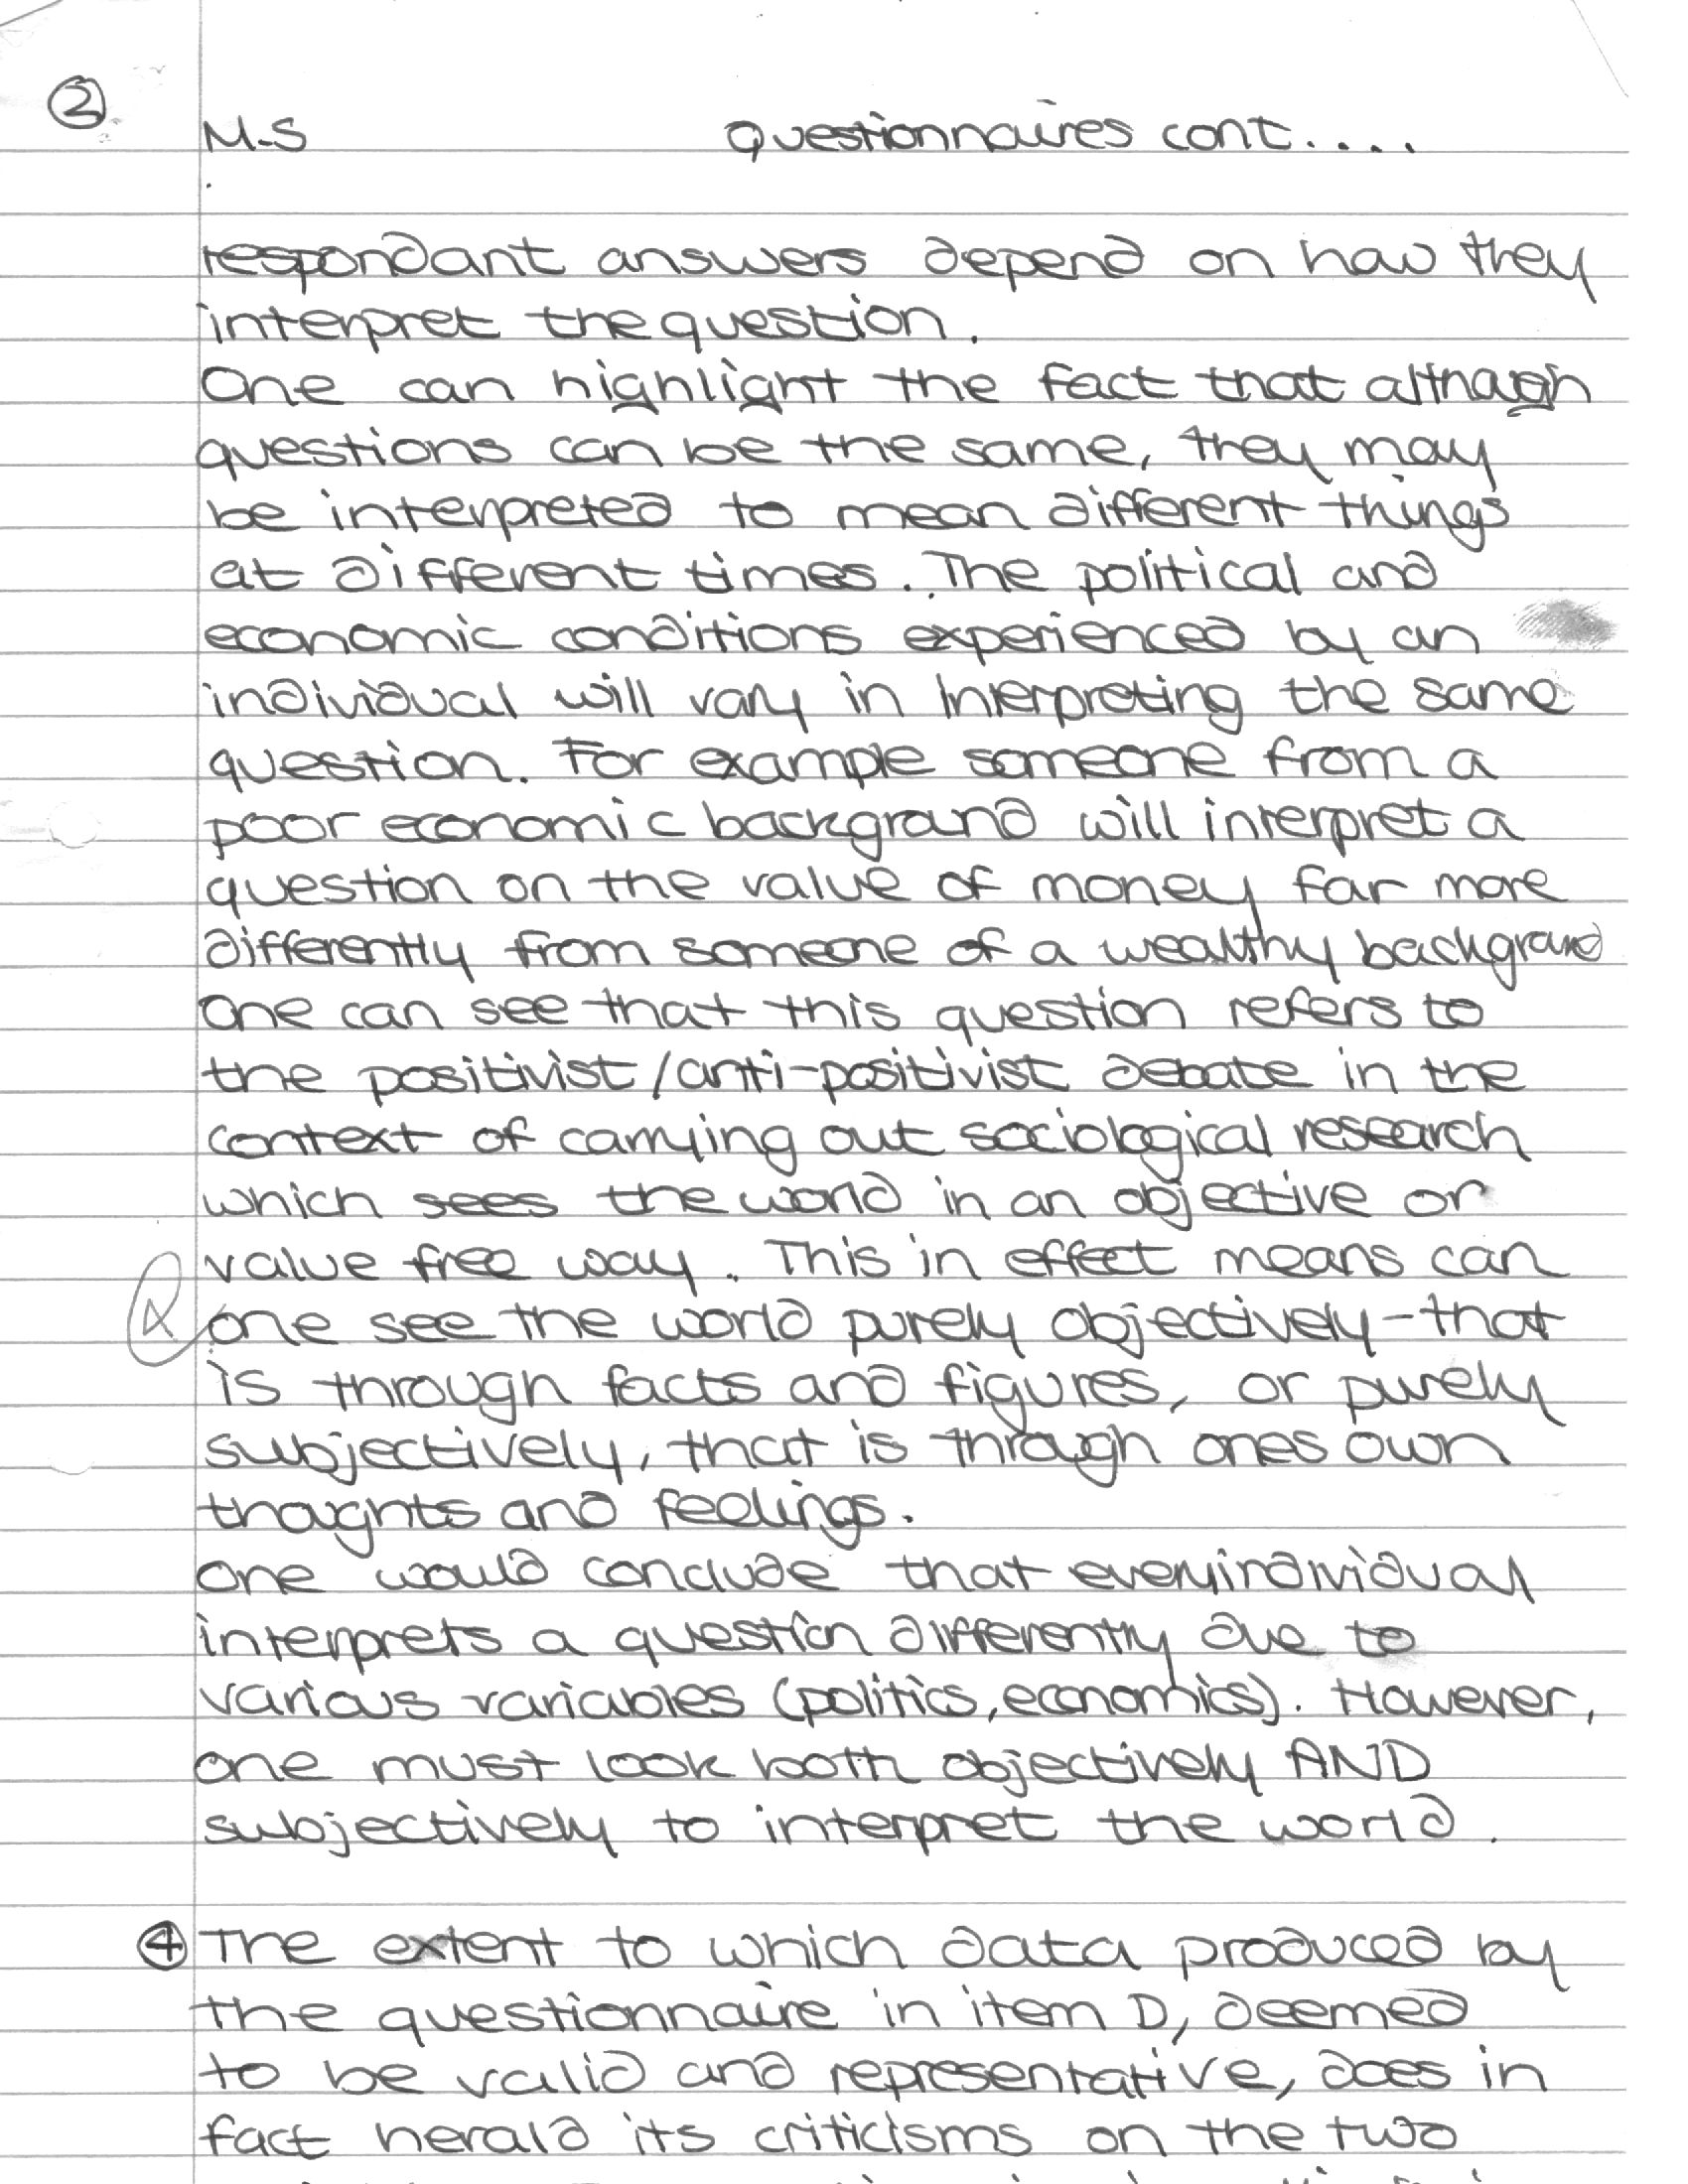 ②
M-S Questionnaires cont....
respondant answers depend on how they
interpret the question.
One can highlight the fact that although
questions can be the same, they may
be interpreted to mean different things
at different times. The political and
economic conditions experienced by an
individual will vary in interpreting the same
question. For example someone from a
poor economic background will interpret a
question on the value of money far more
differently from someone of a wealthy background
One can see that this question refers to
the positivist/anti-positivist debate in the
context of carrying out sociological research
which sees the world in an objective or
value free way. This in effect means can
one see the world purely objectively-that
is through facts and figures, or purely
subjectively, that is through ones own
thoughts and feelings.
One would conclude that every individual
interprets a question differently due to
various variables (politics, economics). However,
one must look both objectively AND
subjectively to interpret the world.
④ The extent to which data produced by
the questionnaire in item D, deemed
to be valid and representative, does in
fact herald its criticisms on the two